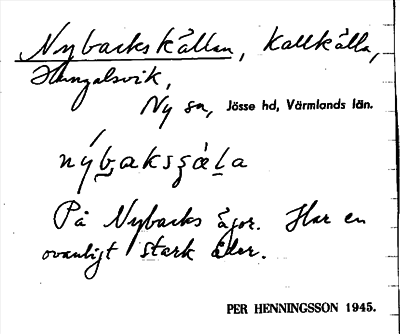 Nybackskällan, Kallkälla,
Hungalsvik,
Ny sn, Jösse hd, Värmlands län.
nýbaksɕäla
På Nybacks ägor. Har en
ovanligt stark åder.
PER HENNINGSSON 1945.